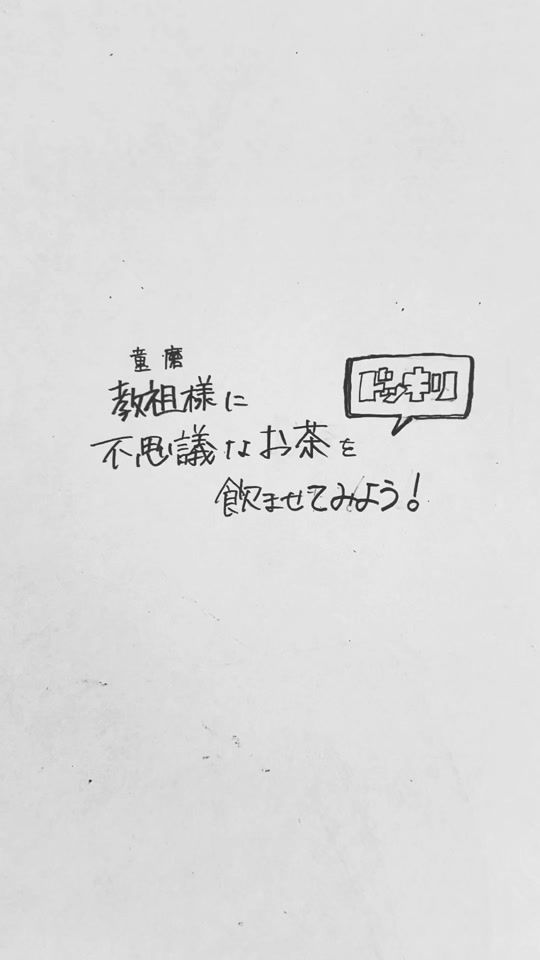 童磨
教祖様に
ドッキリ
不思議なお茶を
飲ませてみよう!